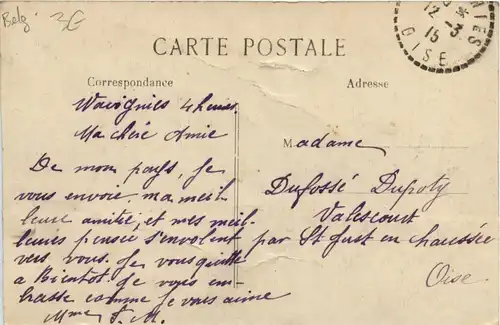 Belg. 3E
12 * 15 -3 OISE
CARTE POSTALE
Correspondance
Adresse
Wavignies 4 heures.
Ma chère Amie
De mon pays, je
vous envoie ma meil
leure amitié, et mes meil-
leures pensée s'envolent
vers vous. Je vous quitte
a Bientot. Je vous em-
brasse comme je vous aime
Mme
Madame
Dufossé Dupoty
Valescourt
par St Just en chaussée
Oise.